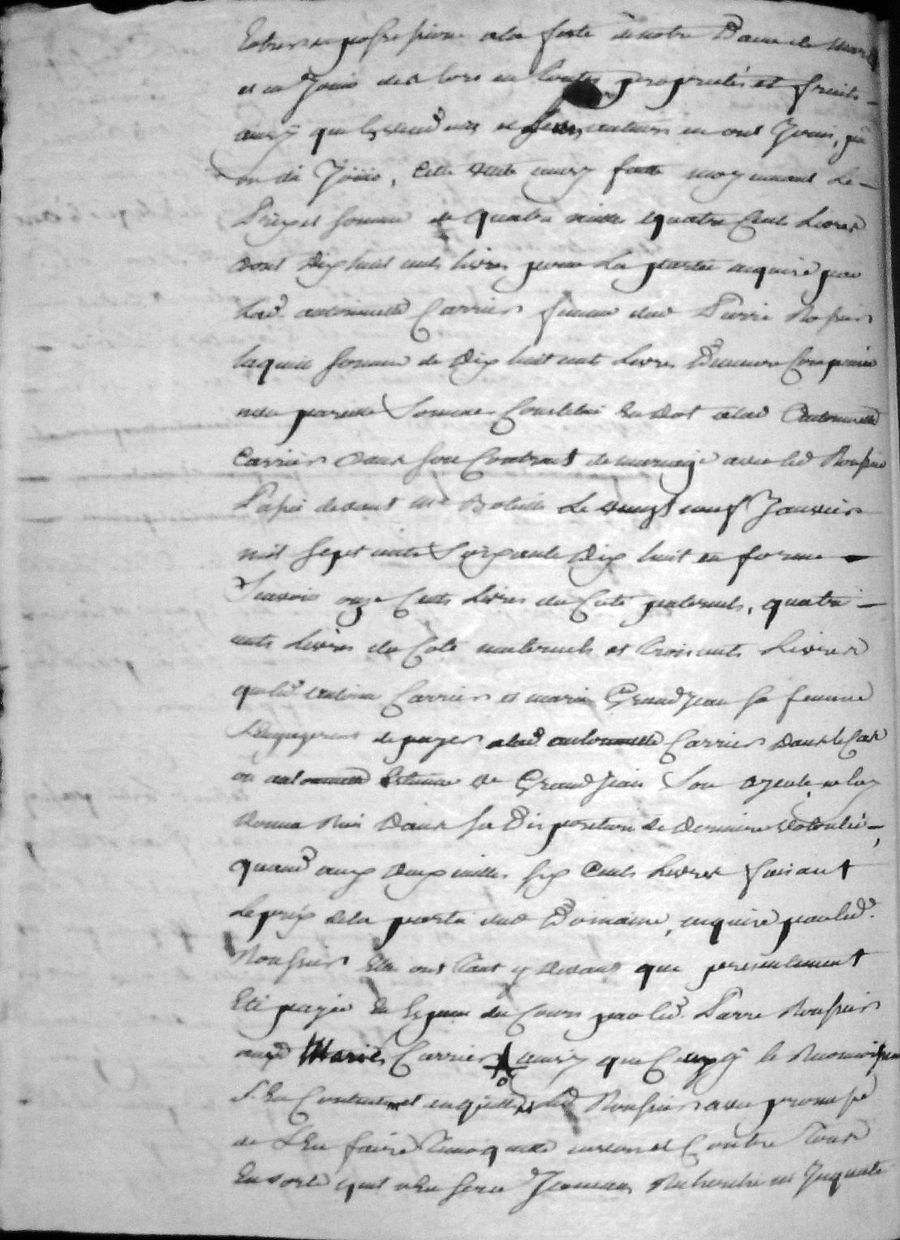 possession a la feste de notre Dame de Mars
et en Jouis des lors en toutte proprietés et fruits
ainsy que en ont Jouis,
ou du Jouir, Cette vente ainsy faitte moyennant Le
Prix et somme de quatre mille quatre Cent Livres
dont Dix huit cents livres pour La partie acquise par
Lad. antoinette Carrier femme dud Pierre Rousier
laquelle somme de Dix huit cents Livres Demeure Compensée
avec pareille Somme Constitué En Dot alad Antoinette
Carrier Dans son Contract de mariage avec led Rousier
Passé devant Me Le vingt neuf Janvier
mil sept cents Soixante Dix huit en forme
Scavoir onze Cents Livres du Coté paternels, quatre
cents Livres du Coté maternels et trois cents Livres
queled. antoine Carrier et marie GrandJean sa femme
de payer alad antoinette Carrier Dans le Cas
ou antoinette de GrandJean Son ayeule ne luy
Donna Rien Dans sa Disposition de Derniere volonté,
quand aux Deux milles six Cents Livres faisant
Le prix dela partie dud Domaine, acquise par led.
Rousier Elle ont tant cy devant que presentement
Eté payée En Espece de Cours par led. Pierre Rousier
auxd Mariés Carrier ainsy que Ceuxcy le Reconnoissent
S'En Contentent et en quittent led Rousier avec promesse
de L'En faire tenir quitte envers et Contre Tous
En sorte quil n'En sera Jamais Recherché ni Inquieté